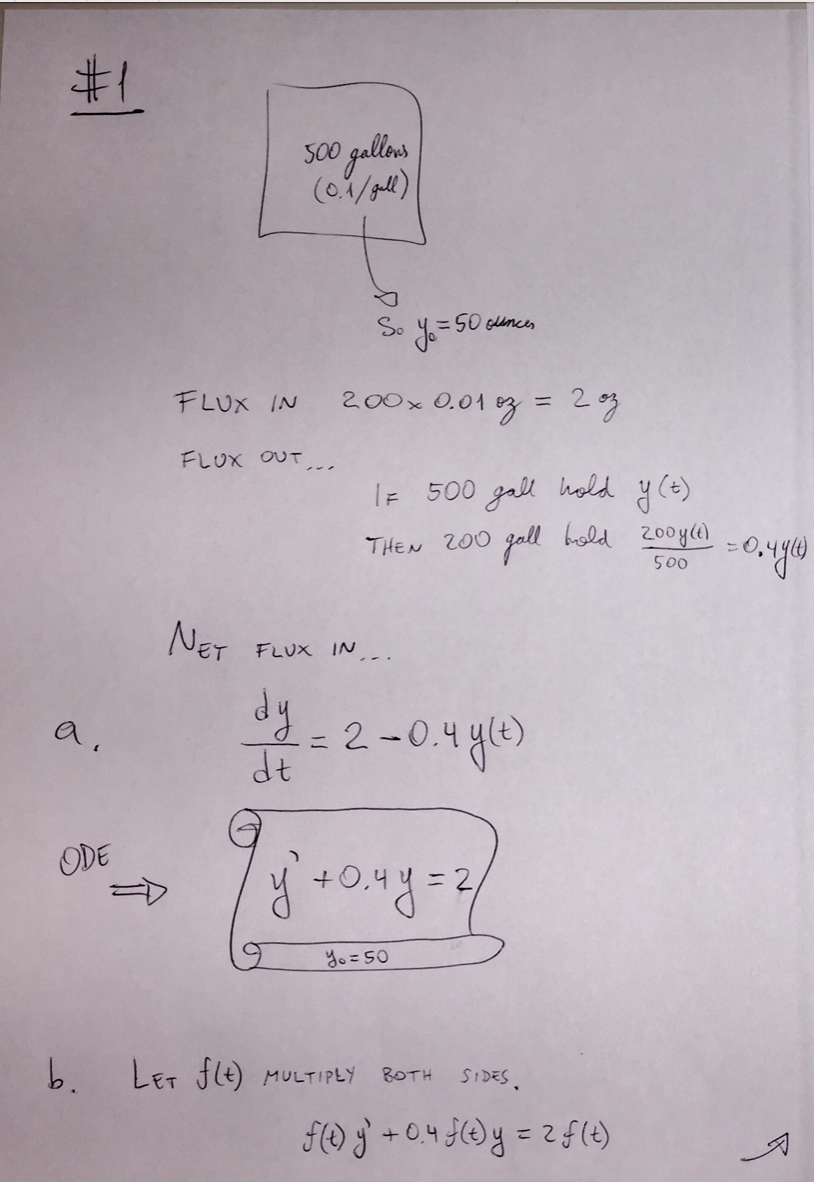 #1
500 gallons
(0.1/gall)
So y₀ = 50 ounces
FLUX IN 200 x 0.01 oz = 2 oz
FLUX OUT...
IF 500 gall hold y(t)
THEN 200 gall hold 200y(t)/500 = 0.4y(t)
NET FLUX IN...
a. dy/dt = 2 - 0.4 y(t)
ODE ⇒ y' + 0.4 y = 2
y₀ = 50
b. LET f(t) MULTIPLY BOTH SIDES.
f(t) y' + 0.4 f(t) y = 2 f(t)